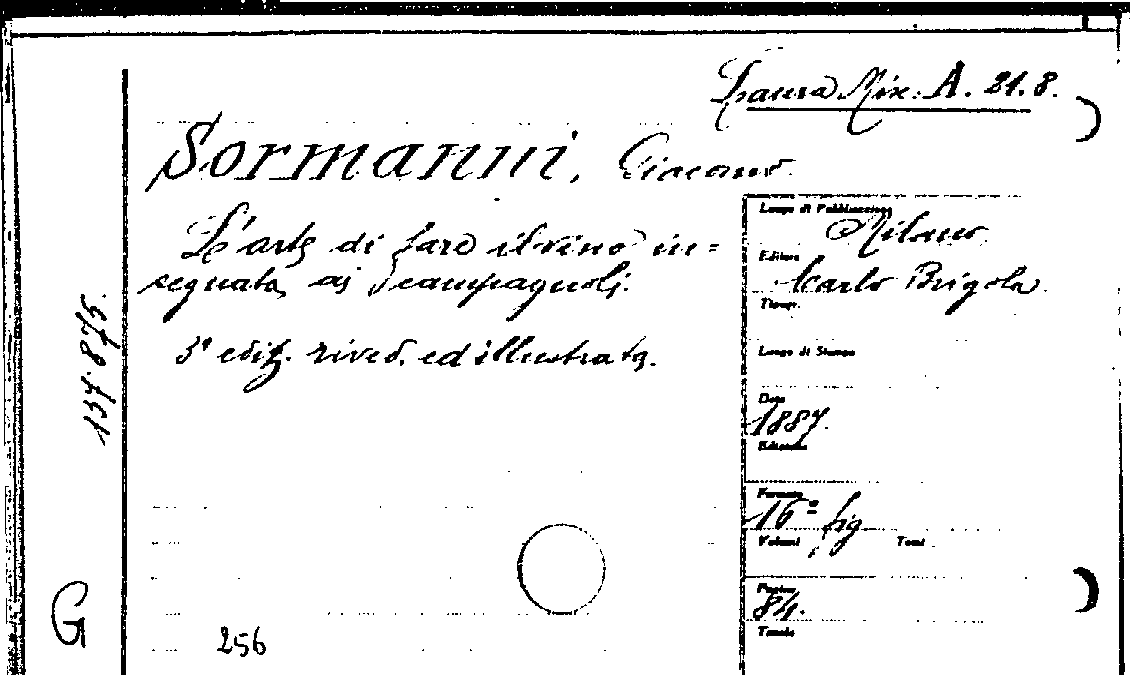 Laura Mix. A. 21. 8.
Sormanni, Giacomo
L'arte di fare il vino in=
segnata ai campagnoli.
3ª ediz. rived. ed illustrata.
Luogo di Pubblicazione
Milano
Editore
Carlo Brigola
Tipogr.
Luogo di Stampa
Data
1887.
Edizione
Formato
16º fig
Volumi Tomi
Pagine
84.
Tavole
157.875
G
256